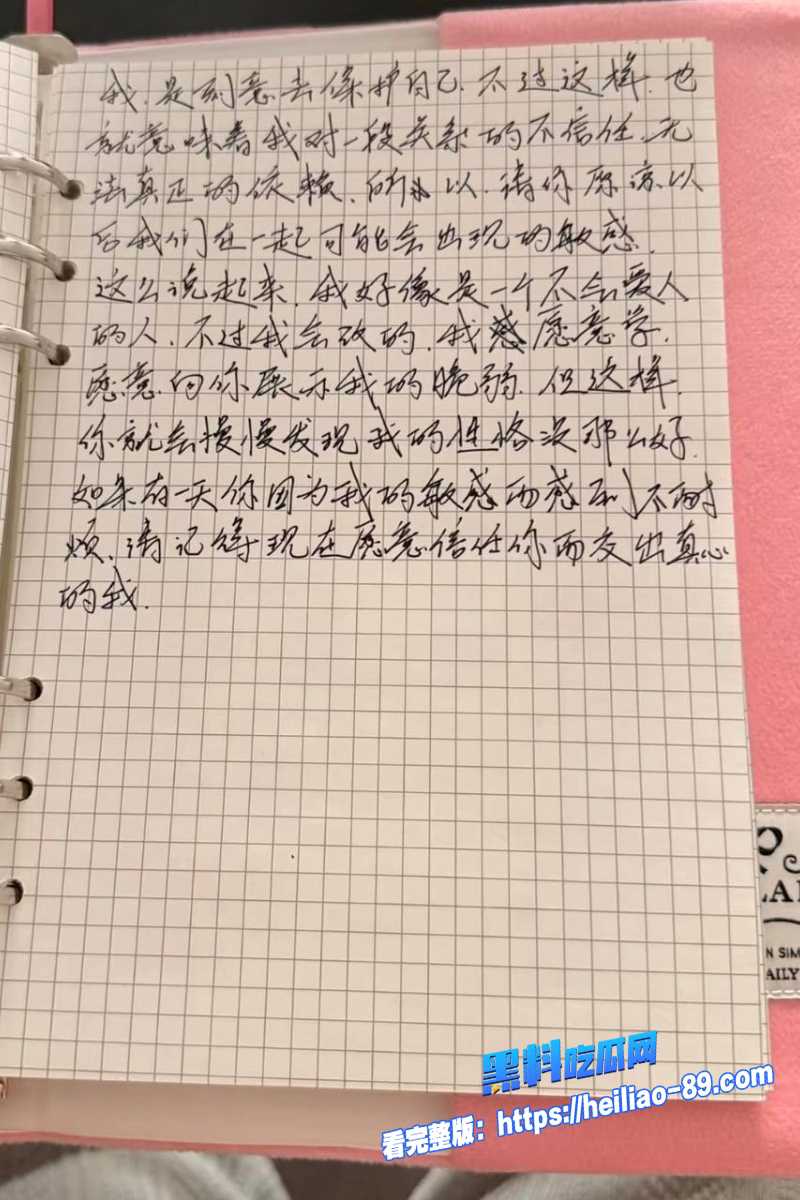 我.是刻意去保护自己.不过这样.也
就意味着我对一段关系的不信任.无
法真正的依赖.所以.请你原谅以
后我们在一起可能会出现的敏感.
这么说起来.我好像是一个不会爱人
的人.不过我会改的.我愿意学.
愿意向你展示我的脆弱.但这样.
你就会慢慢发现我的性格没那么好.
如果有一天你因为我的敏感而感到不耐
烦.请记得现在愿意信任你而交出真心
的我.
N SIM
AILY
黑料吃瓜网
看完整版：https://heiliao-89.com